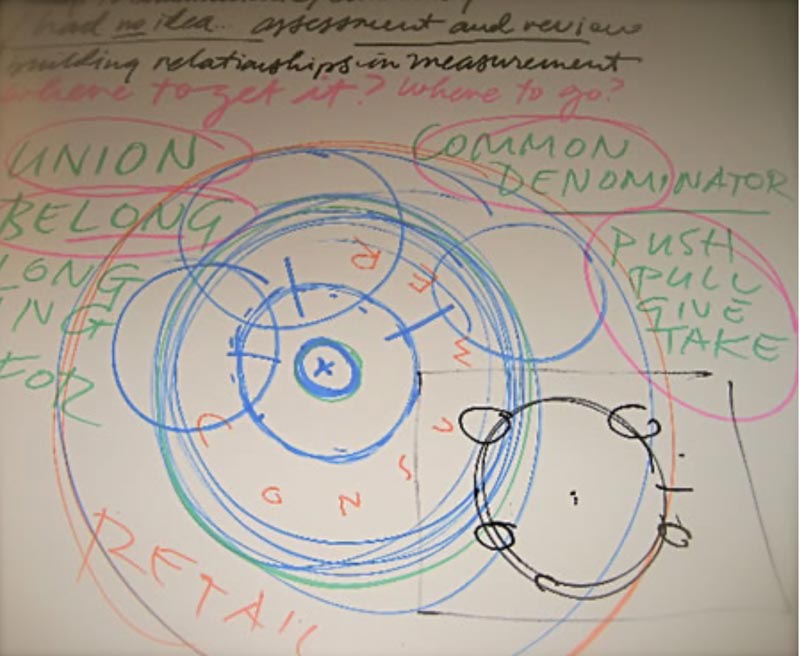 I had no idea... assessment and review
building relationships in measurement
where to get it? Where to go?
UNION
COMMON
DENOMINATOR
BELONG
LONG
ING
FOR
PUSH
PULL
GIVE
TAKE
CONSUMER
RETAIL